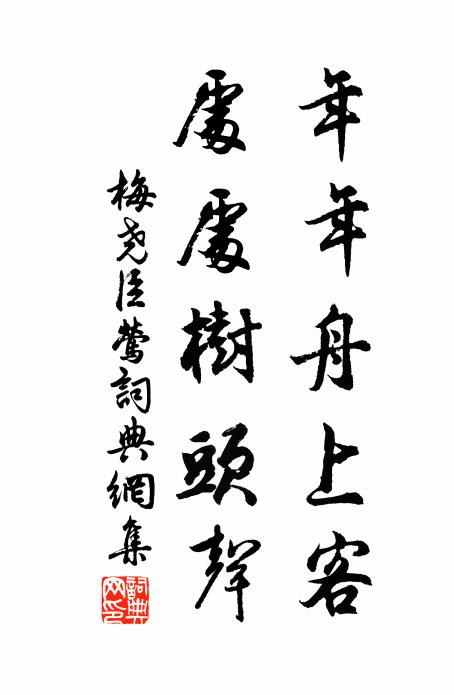 年年舟上客
處處樹頭聲
梅堯臣鶯詞典網集
詞典网印